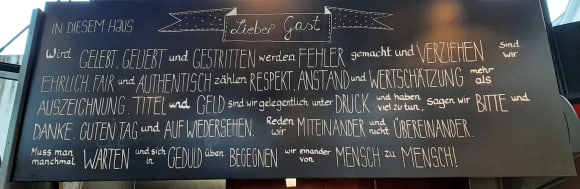 Lieber Gast
IN DIESEM HAUS
Wird GELEBT, GELIEBT und GESTRITTEN werden FEHLER gemacht und VERZIEHEN sind wir
EHRLICH, FAIR und AUTHENTISCH zählen RESPEKT, ANSTAND und WERTSCHÄTZUNG mehr als
AUSZEICHNUNG, TITEL und GELD sind wir gelegentlich unter DRUCK und haben viel zu tun, sagen wir BITTE und
DANKE, GUTEN TAG und AUF WIEDERSEHEN. Reden wir MITEINANDER und nicht ÜBEREINANDER.
Muss man manchmal WARTEN und sich in GEDULD üben BEGEGNEN wir einander von MENSCH zu MENSCH!